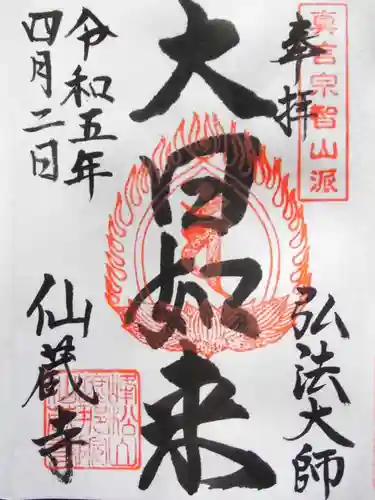 真言宗智山派
奉拝
弘法大師
大日如来
令和五年
四月二日
仙蔵寺